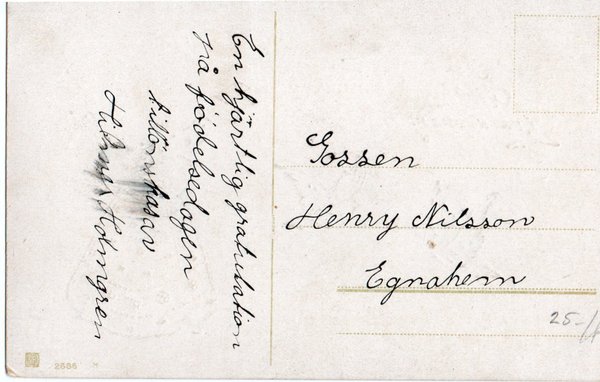 En hjärtlig gratulation
på födelsedagen
tillönskas av
Holmgren
Gossen
Henry Nilsson
Egnahem
25-
2686